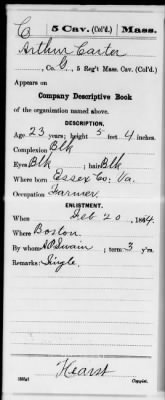 C 5 Cav. (Col'd.) Mass.
Arthur Carter
, Co. G, 5 Reg't Mass. Cav. (Col'd.)
Appears on
Company Descriptive Book
of the organization named above.
DESCRIPTION.
Age 23 years; height 5 feet 4 inches.
Complexion Blk
Eyes Blk; hair Blk
Where born Essex Co: Va.
Occupation Farmer
ENLISTMENT.
When Feb 20, 1864.
Where Boston
By whom Swain; term 3 y'rs.
Remarks: Single.
Hearst
Copyist.